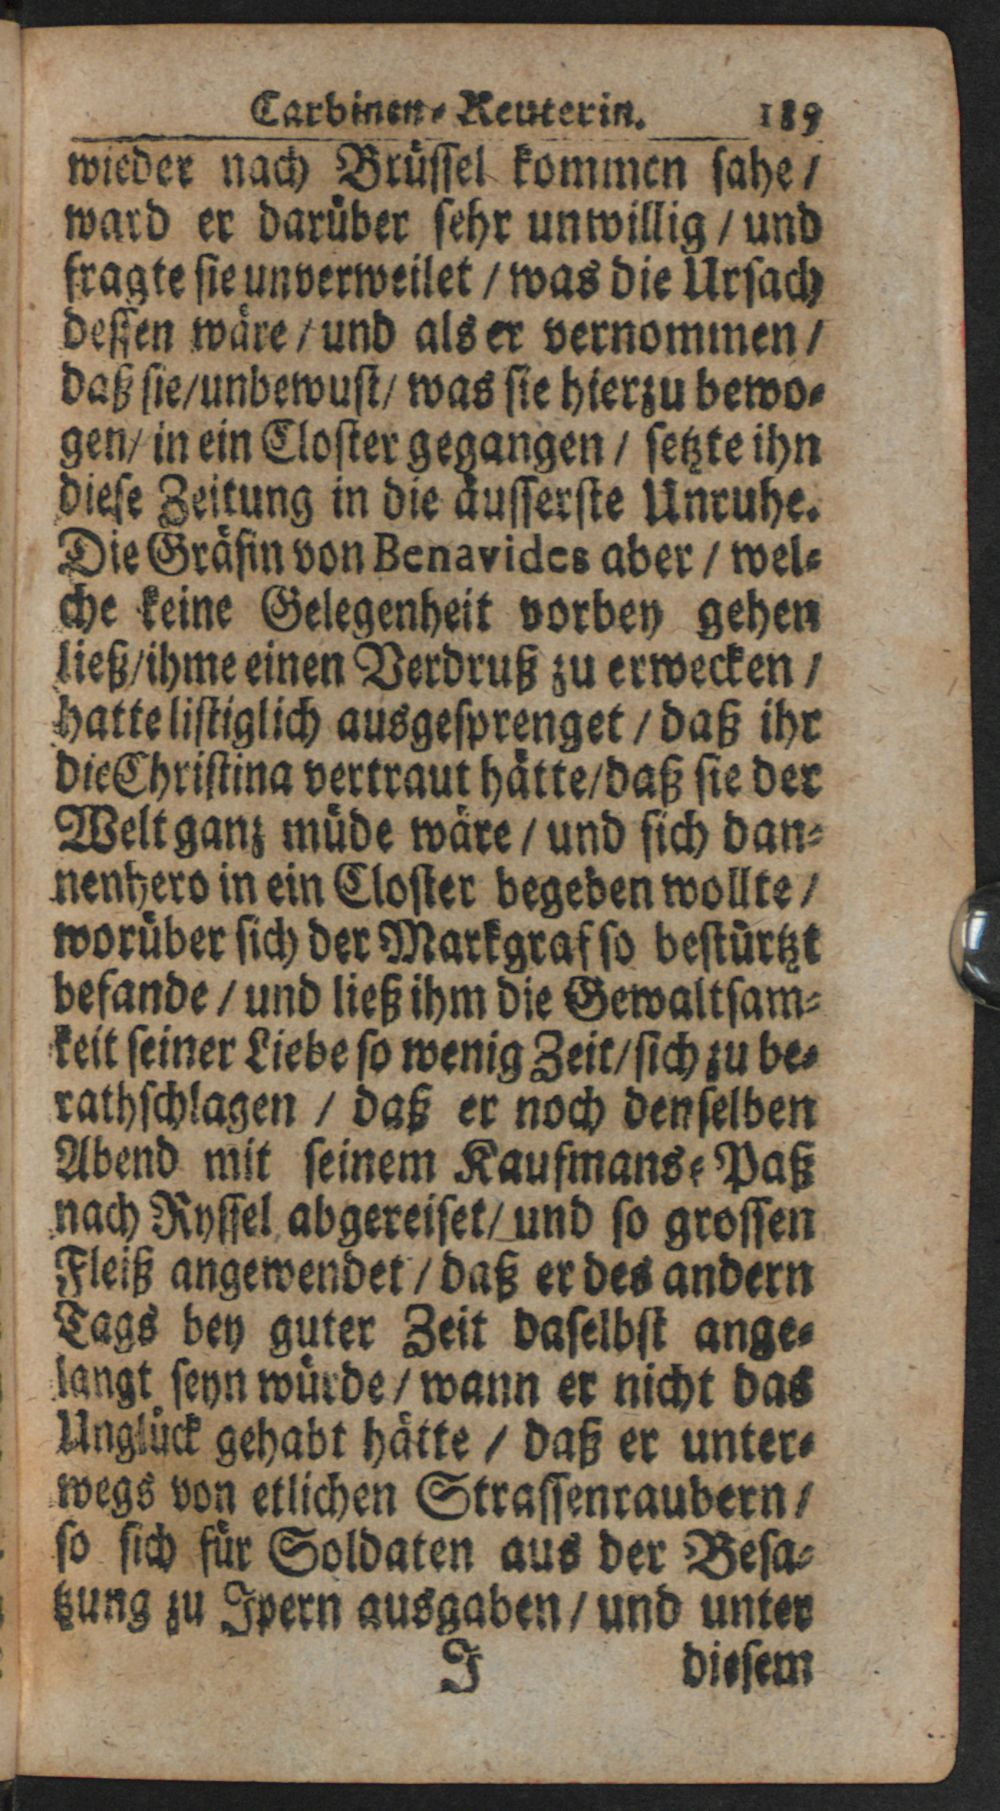 Carbinen-Reuterin. 189
wieder nach Brüssel kommen sahe /
ward er darüber sehr unwillig / und
fragte sie unverweilet / was die Ursach
dessen wäre / und als er vernommen /
daß sie / unbewust / was sie hierzu bewo-
gen / in ein Closter gegangen / setzte ihn
diese Zeitung in die äusserste Unruhe.
Die Gräfin von Benavides aber / wel-
che keine Gelegenheit vorbey gehen
ließ / ihme einen Verdruß zu erwecken /
hatte listiglich ausgesprenget / daß ihr
die Christina vertraut hätte / daß sie der
Welt ganz müde wäre / und sich dan-
nenhero in ein Closter begeben wollte /
worüber sich der Markgraf so bestürtzt
befande / und ließ ihm die Gewaltsam-
keit seiner Liebe so wenig Zeit / sich zu be-
rathschlagen / daß er noch denselben
Abend mit seinem Kaufmans-Paß
nach Ryssel abgereiset / und so grossen
Fleiß angewendet / daß er des andern
Tags bey guter Zeit daselbst ange-
langt seyn würde / wann er nicht das
Unglück gehabt hätte / daß er unter-
wegs von etlichen Strassenraubern /
so sich für Soldaten aus der Besa-
tzung zu Ipern ausgaben / und unter
I diesem